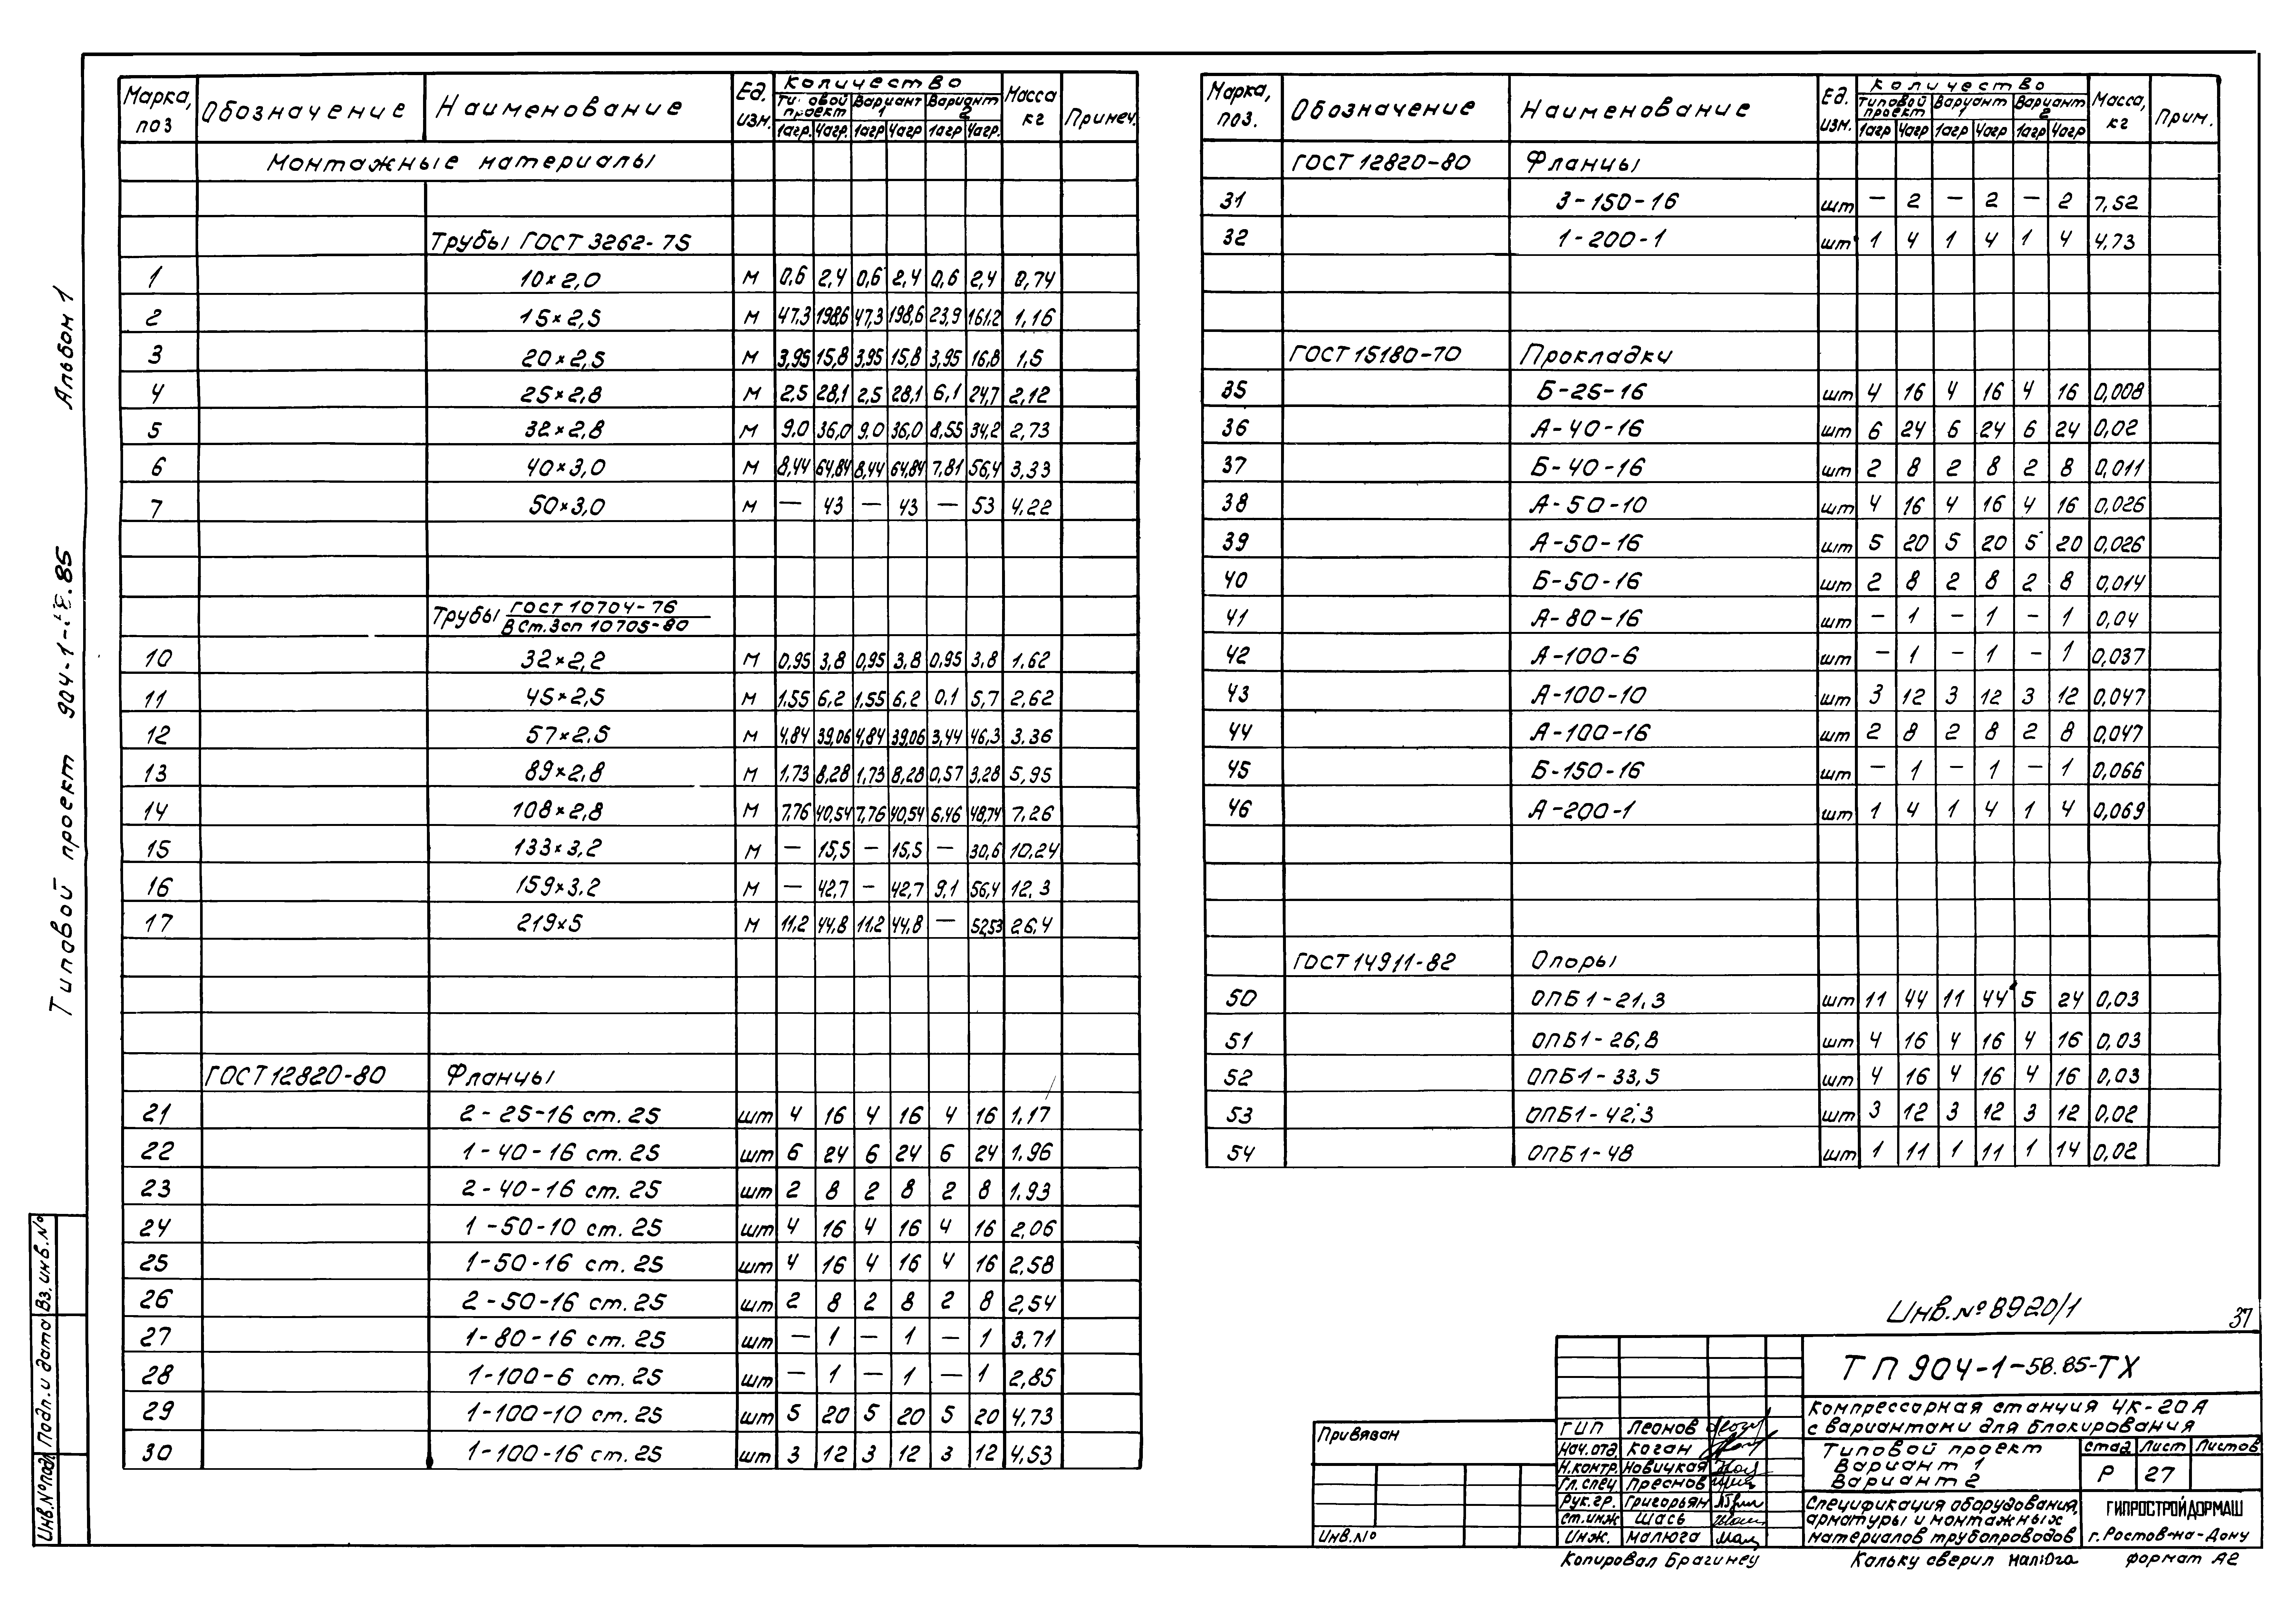 Альбом 1
Типовой проект 904-1-58.85
Марка, поз | Обозначение | Наименование | Ед. изм. | Количество | Масса кг | Примеч.
Типовой проект | Вариант 1 | Вариант 2
1агр. | 4агр. | 1агр | 4агр | 1агр | 4агр.
Монтажные материалы
Трубы ГОСТ 3262-75
1 | 10×2,0 | м | 0,6 | 2,4 | 0,6 | 2,4 | 0,6 | 2,4 | 0,74
2 | 15×2,5 | м | 47,3 | 198,6 | 47,3 | 198,6 | 23,9 | 161,2 | 1,16
3 | 20×2,5 | м | 3,95 | 15,8 | 3,95 | 15,8 | 3,95 | 16,8 | 1,5
4 | 25×2,8 | м | 2,5 | 28,1 | 2,5 | 28,1 | 6,1 | 24,7 | 2,12
5 | 32×2,8 | м | 9,0 | 36,0 | 9,0 | 36,0 | 8,55 | 34,2 | 2,73
6 | 40×3,0 | м | 8,44 | 64,84 | 8,44 | 64,84 | 7,81 | 56,4 | 3,33
7 | 50×3,0 | м | — | 43 | — | 43 | — | 53 | 4,22
Трубы ГОСТ 10704-76 / В Ст.3сп 10705-80
10 | 32×2,2 | м | 0,95 | 3,8 | 0,95 | 3,8 | 0,95 | 3,8 | 1,62
11 | 45×2,5 | м | 1,55 | 6,2 | 1,55 | 6,2 | 0,1 | 5,7 | 2,62
12 | 57×2,5 | м | 4,84 | 39,06 | 4,84 | 39,06 | 3,44 | 46,3 | 3,36
13 | 89×2,8 | м | 1,73 | 8,28 | 1,73 | 8,28 | 0,57 | 3,28 | 5,95
14 | 108×2,8 | м | 7,76 | 40,54 | 7,76 | 40,54 | 6,46 | 48,74 | 7,26
15 | 133×3,2 | м | — | 15,5 | — | 15,5 | — | 30,6 | 10,24
16 | 159×3,2 | м | — | 42,7 | — | 42,7 | 9,1 | 56,4 | 12,3
17 | 219×5 | м | 11,2 | 44,8 | 11,2 | 44,8 | — | 52,53 | 26,4
ГОСТ 12820-80 | Фланцы
21 | 2-25-16 ст. 25 | шт | 4 | 16 | 4 | 16 | 4 | 16 | 1,17
22 | 1-40-16 ст. 25 | шт | 6 | 24 | 6 | 24 | 6 | 24 | 1,96
23 | 2-40-16 ст. 25 | шт | 2 | 8 | 2 | 8 | 2 | 8 | 1,93
24 | 1-50-10 ст. 25 | шт | 4 | 16 | 4 | 16 | 4 | 16 | 2,06
25 | 1-50-16 ст. 25 | шт | 4 | 16 | 4 | 16 | 4 | 16 | 2,58
26 | 2-50-16 ст. 25 | шт | 2 | 8 | 2 | 8 | 2 | 8 | 2,54
27 | 1-80-16 ст. 25 | шт | — | 1 | — | 1 | — | 1 | 3,71
28 | 1-100-6 ст. 25 | шт | — | 1 | — | 1 | — | 1 | 2,85
29 | 1-100-10 ст. 25 | шт | 5 | 20 | 5 | 20 | 5 | 20 | 4,73
30 | 1-100-16 ст. 25 | шт | 3 | 12 | 3 | 12 | 3 | 12 | 4,53
Марка, поз. | Обозначение | Наименование | Ед. изм. | Количество | Масса, кг | Прим.
Типовой проект | Вариант 1 | Вариант 2
1агр | 4агр | 1агр | 4агр | 1агр | 4агр
ГОСТ 12820-80 | Фланцы
31 | 3-150-16 | шт | — | 2 | — | 2 | — | 2 | 7,52
32 | 1-200-1 | шт | 1 | 4 | 1 | 4 | 1 | 4 | 4,73
ГОСТ 15180-70 | Прокладки
35 | Б-25-16 | шт | 4 | 16 | 4 | 16 | 4 | 16 | 0,008
36 | А-40-16 | шт | 6 | 24 | 6 | 24 | 6 | 24 | 0,02
37 | Б-40-16 | шт | 2 | 8 | 2 | 8 | 2 | 8 | 0,011
38 | А-50-10 | шт | 4 | 16 | 4 | 16 | 4 | 16 | 0,026
39 | А-50-16 | шт | 5 | 20 | 5 | 20 | 5 | 20 | 0,026
40 | Б-50-16 | шт | 2 | 8 | 2 | 8 | 2 | 8 | 0,014
41 | А-80-16 | шт | — | 1 | — | 1 | — | 1 | 0,04
42 | А-100-6 | шт | — | 1 | — | 1 | — | 1 | 0,037
43 | А-100-10 | шт | 3 | 12 | 3 | 12 | 3 | 12 | 0,047
44 | А-100-16 | шт | 2 | 8 | 2 | 8 | 2 | 8 | 0,047
45 | Б-150-16 | шт | — | 1 | — | 1 | — | 1 | 0,066
46 | А-200-1 | шт | 1 | 4 | 1 | 4 | 1 | 4 | 0,069
ГОСТ 14911-82 | Опоры
50 | ОПБ1-21,3 | шт | 11 | 44 | 11 | 44 | 5 | 24 | 0,03
51 | ОПБ1-26,8 | шт | 4 | 16 | 4 | 16 | 4 | 16 | 0,03
52 | ОПБ1-33,5 | шт | 4 | 16 | 4 | 16 | 4 | 16 | 0,03
53 | ОПБ1-42,3 | шт | 3 | 12 | 3 | 12 | 3 | 12 | 0,02
54 | ОПБ1-48 | шт | 1 | 11 | 1 | 11 | 1 | 14 | 0,02
Инв.№ 8920/1
37
ТП 904-1-58.85-ТХ
Компрессорная станция 4К-20А
с вариантами для блокирования
Типовой проект
Вариант 1
Вариант 2
Стад. | Лист | Листов
Р | 27
Спецификация оборудования,
арматуры и монтажных
материалов трубопроводов
ГИПРОСТРОЙДОРМАШ
г. Ростов-на-Дону
ГИП | Леонов
Нач.отд | Коган
Н.контр. | Новицкая
Гл.спец | Преснов
Рук.гр. | Григорьян
Ст.инж | Шась
Инж. | Малюга
Привязан
Инв.№
Копировал Брагинец
Кальку сверил Малюга
формат А2
Вз. инв.№
Подп. и дата
Инв.№ подл